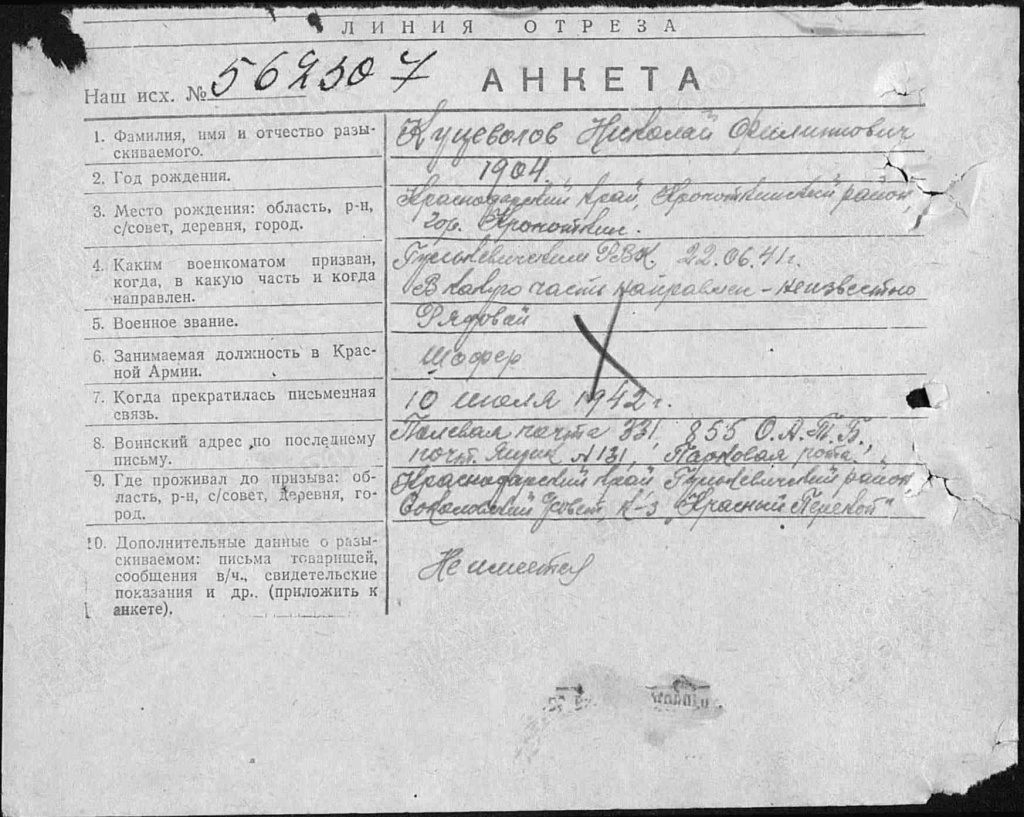 ЛИНИЯ ОТРЕЗА
Наш исх. № 562307
АНКЕТА
1. Фамилия, имя и отчество разы-
скиваемого.
Куцеволов Николай Филиппович
2. Год рождения.
1904.
3. Место рождения: область, р-н,
с/совет, деревня, город.
Краснодарский край, Кропоткинский район,
гор. Кропоткин.
4. Каким военкоматом призван,
когда, в какую часть и когда
направлен.
Гулькевичским РВК 22.06.41г.
В какую часть направлен - неизвестно
5. Военное звание.
Рядовой
6. Занимаемая должность в Крас-
ной Армии.
Шофер
7. Когда прекратилась письменная
связь.
10 июля 1942 г.
8. Воинский адрес по последнему
письму.
Полевая почта 331, 855 О.А.Т.Б.,
почт. ящик №131, Парковая рота
9. Где проживал до призыва: об-
ласть, р-н, с/совет, деревня, го-
род.
Краснодарский край Гулькевичский район
Соколовский совет, к-з "Красный Перекоп"
10. Дополнительные данные о разы-
скиваемом: письма товарищей,
сообщения в/ч., свидетельские
показания и др.. (приложить к
анкете).
Не имеется